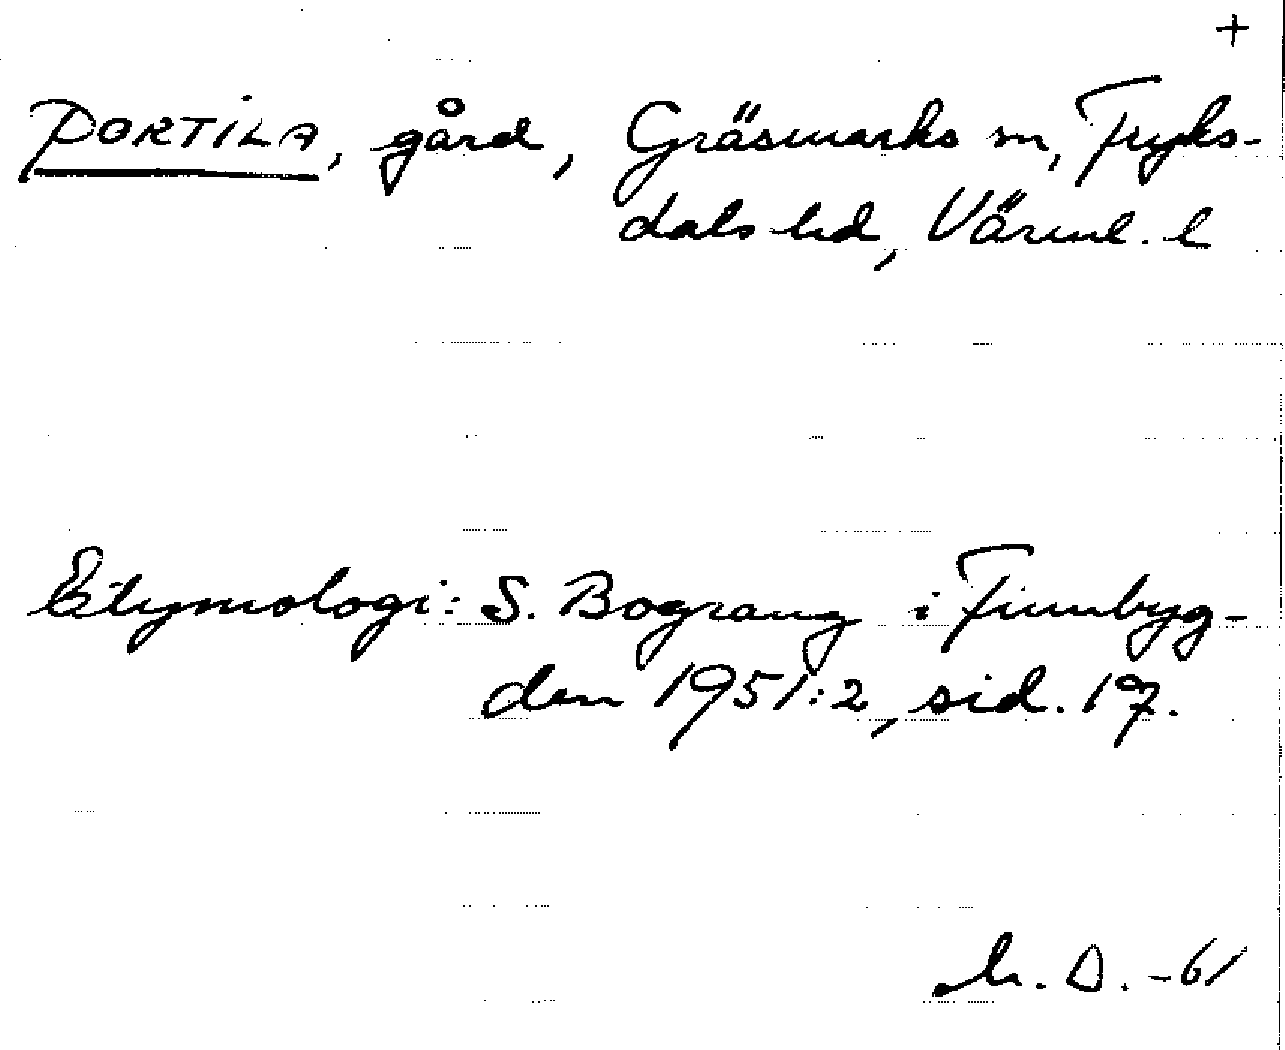 +
PORTILA, gård, Gräsmarks sn, Fryks-
dals hd, Värml. l
Etymologi: S. Bograng i Finnbyg-
den 1951:2, sid. 17.
D. -61